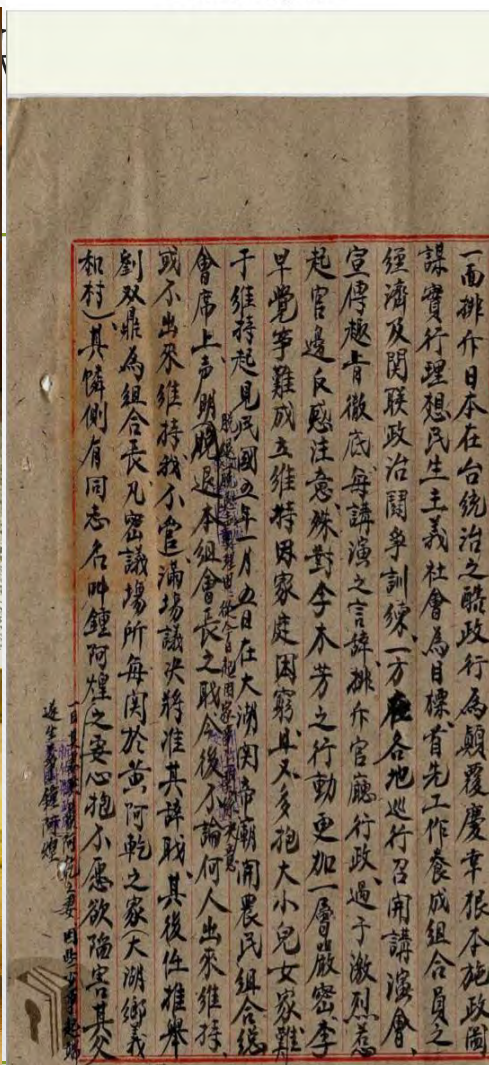 一面排斥日本在台統治之酷政行為顛覆慶幸根本施政圖
謀實行理想民生主義社會為目標、首先工作養成組合員之
經濟及関联政治鬪爭訓練、一方在各地巡行召開講演會、
宣傳趣旨徹底每講演之言辞排斥官廳行政、過于激烈惹
起官邊反感注意殊對李木芳之行動更加一層嚴密李
早覺事難成立維持因家庭困窮且又多抱大小兒女家難
于維持起見民國五年一月五日在大湖関帝廟開農民組合總
會席上声明脱退本組會長之職今後不論何人出來維持、
或不出來維持我不管滿場議決將准其辞職、其後任推舉
劉双鼎為組合長凡密議場所每関於黃阿乾之家(大湖鄉義
和村)其憐側有同志名叫鍾阿煌之妻心抱不愿欲陷害其父
鍾阿煌